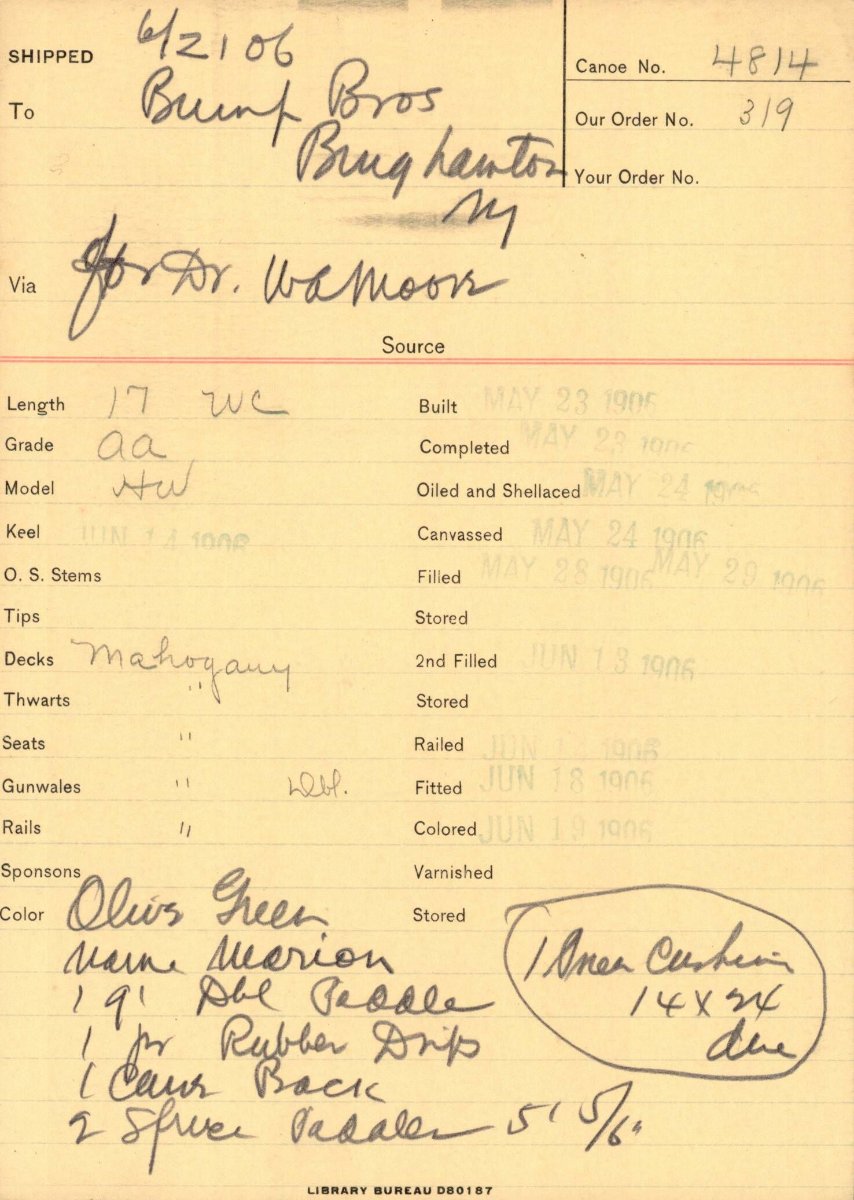 SHIPPED 6/21 06
To Bump Bros
Binghamton
NY
Canoe No. 4814
Our Order No. 319
Your Order No.
Via for Dr. W A Moore
Source
Length 17 WC
Grade AA
Model HW
Keel JUN 14 1906
O. S. Stems
Tips
Decks Mahogany
Thwarts "
Seats "
Gunwales " Dbl.
Rails "
Sponsons
Color Olive Green
Name Marion
1 9' Dbl Paddle
1 pr Rubber Drips
1 Cane Back
2 Spruce Paddles 5'
Built MAY 23 1906
Completed MAY 23 1906
Oiled and Shellaced MAY 24 1906
Canvassed MAY 24 1906
Filled MAY 28 1906 MAY 29 1906
Stored
2nd Filled JUN 13 1906
Stored
Railed JUN 1906
Fitted JUN 18 1906
Colored JUN 19 1906
Varnished
Stored
1 Knee Cushion
14 X 24
due
LIBRARY BUREAU D80187